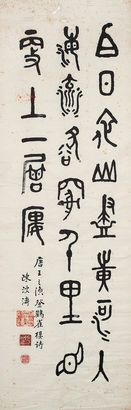 白日依山盡黃河入
海流欲窮千里目
更上一層樓
唐王之渙登鸛雀樓詩
陳